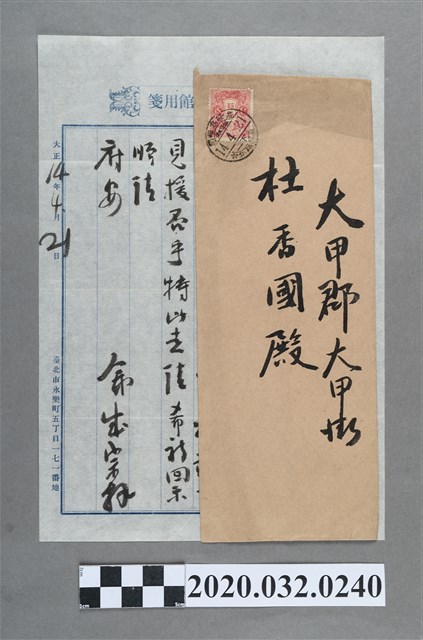 大甲郡大甲街
杜香國殿
14.4.21
館用箋
見援否乎特此走陳希祈回示
順請
府安
大正14年4月21日
臺北市永樂町五丁目一七一番地
2020.032.0240